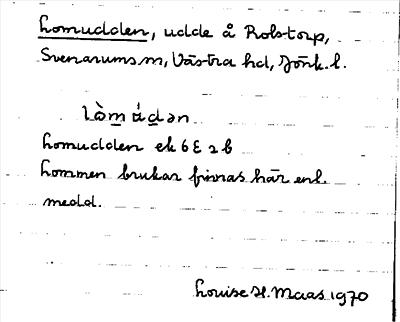 Lomudden, udde å Rolstorp,
Svenarums sn, Västra hd, Jönk. l.
Lomudden ek 6E 2b
Lommen brukar finnas här enl.
medd.
Louise H. Maas 1970